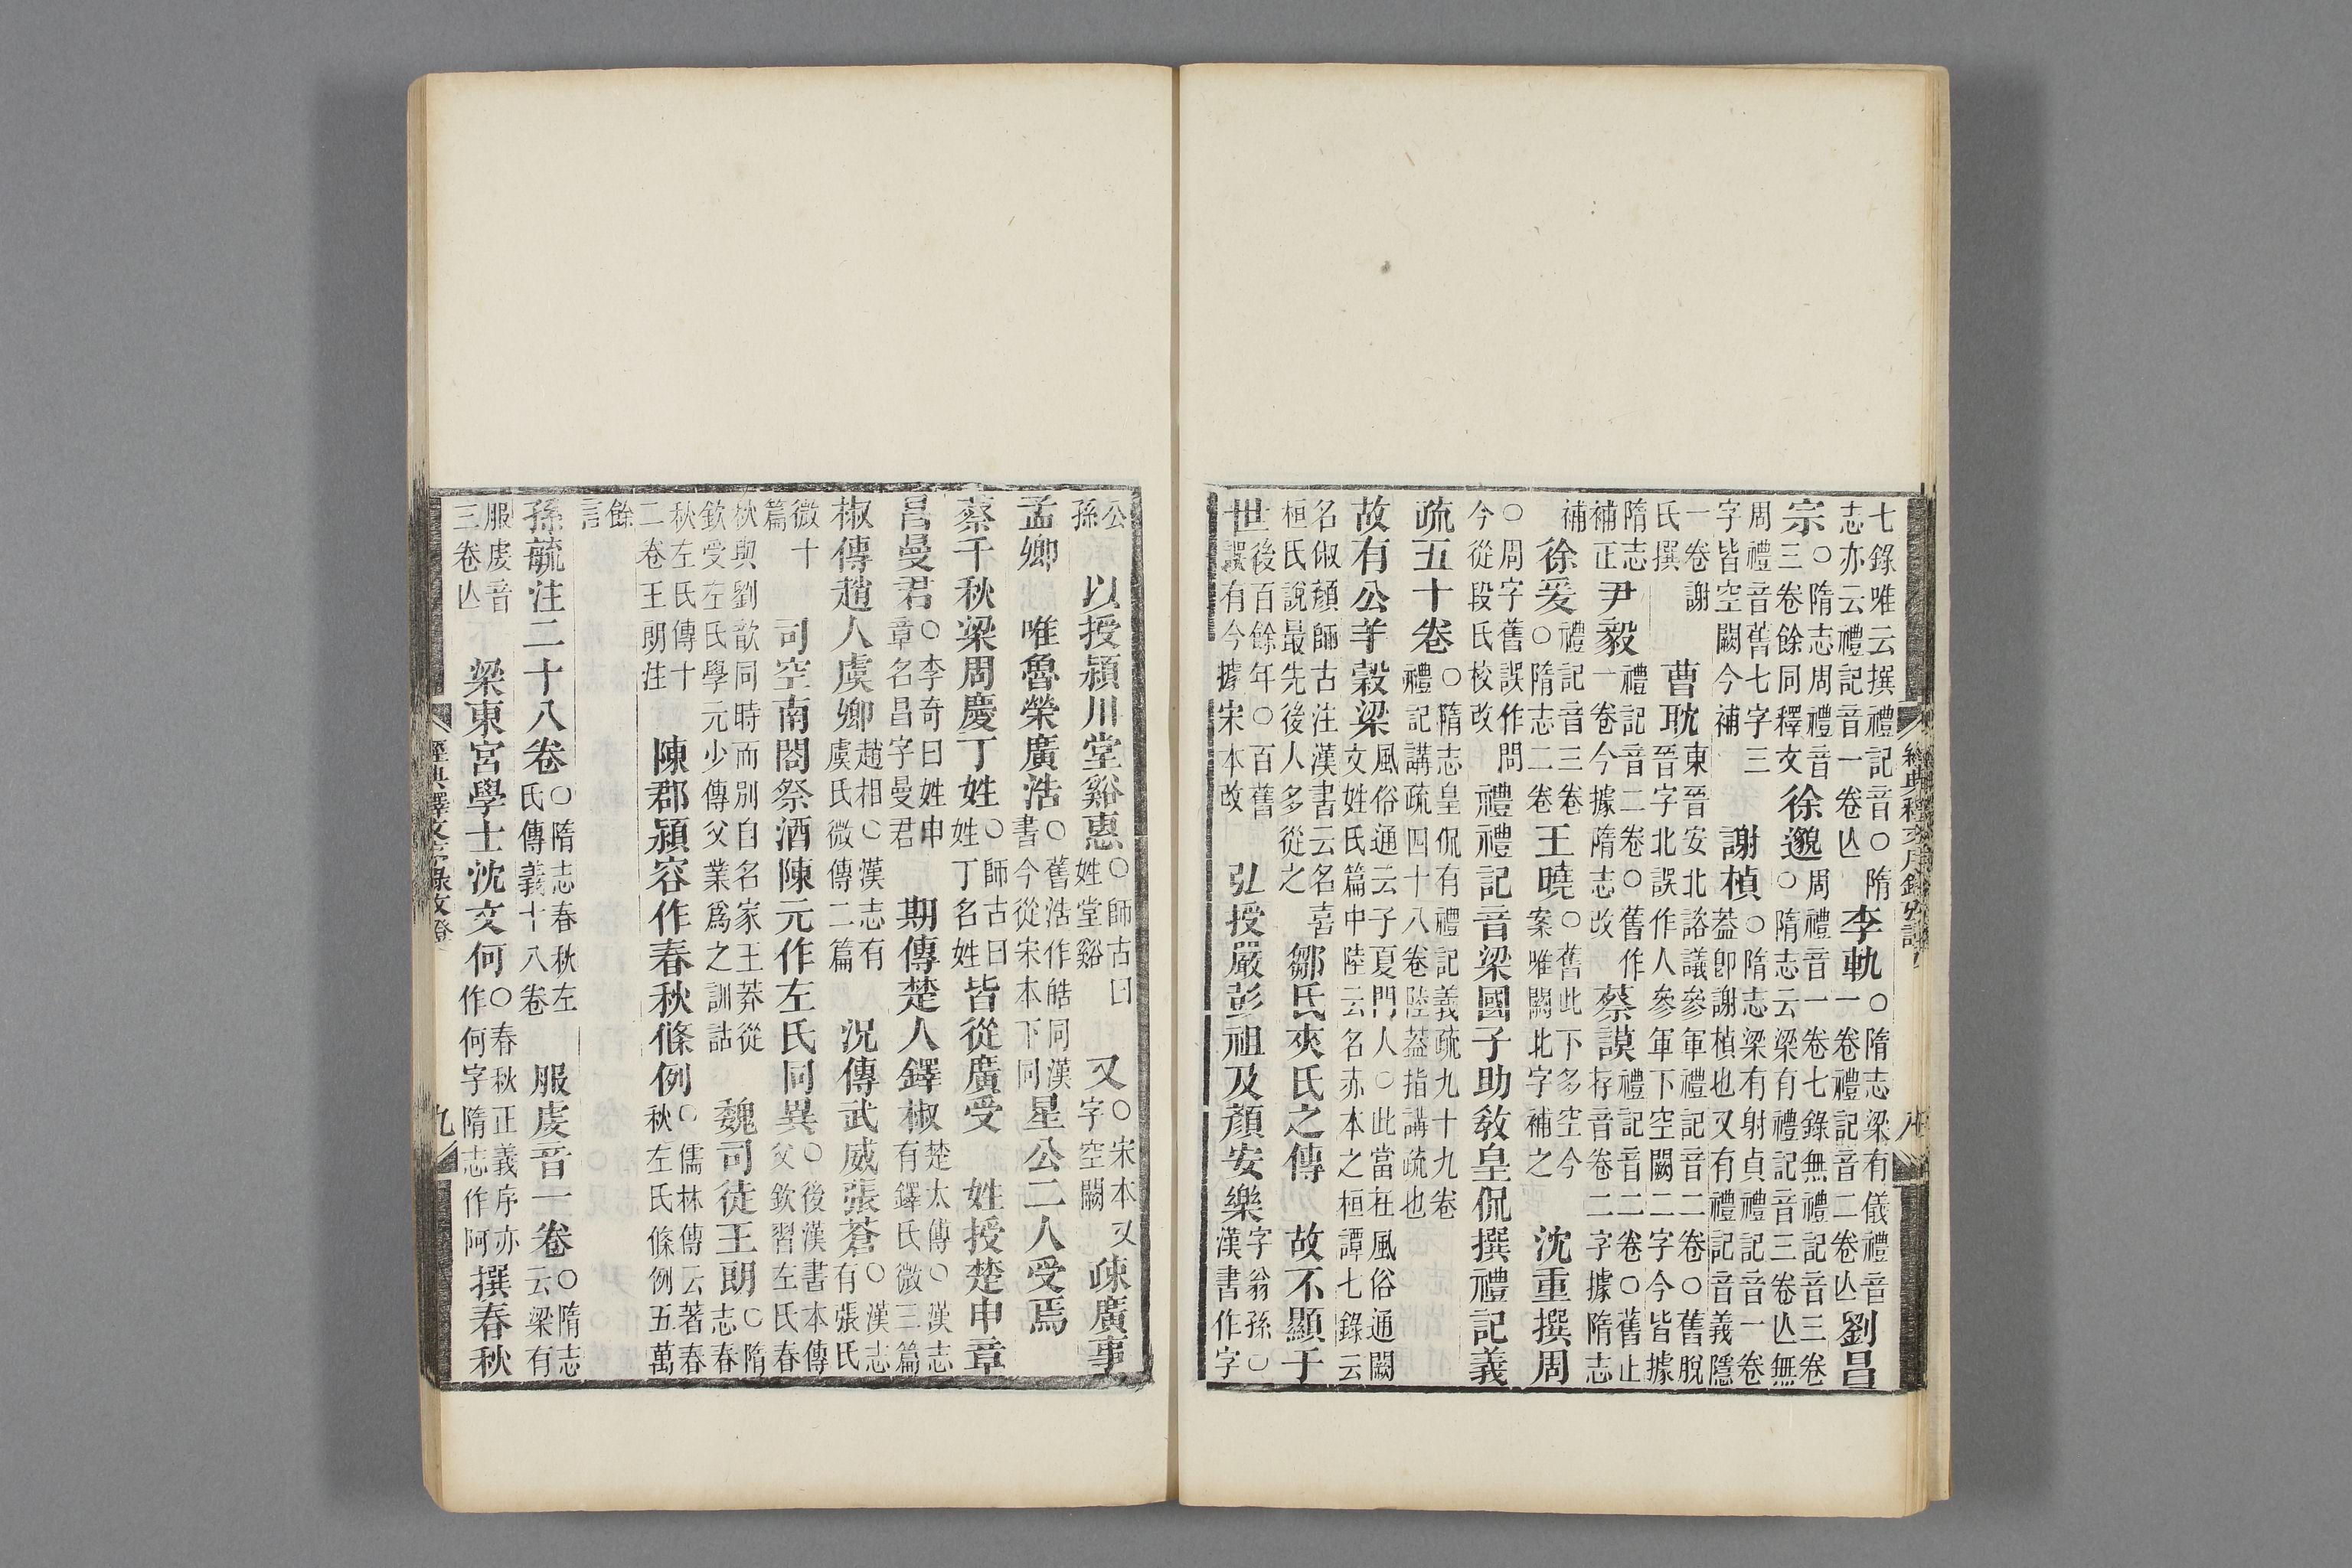 經典釋文序錄攷證 八
七錄唯云撰禮記音○隋志亦云禮記音一卷亾李軌○隋志梁有儀禮音一卷禮記音二卷亾劉昌
宗○隋志周禮音三卷餘同釋文徐邈周禮音一卷七錄無禮記音三卷○隋志云梁有禮記音三卷亾無
周禮音舊七字三字皆空闕今補 謝楨○隋志梁有射貞禮記音一卷葢卽謝楨也又有禮記音義隱
一卷謝氏撰 曹耽東晉安北諮議參軍禮記音二卷○舊脫晉字北誤作人參軍下空闕二字今皆據
隋志補正尹毅禮記音二卷○舊作一卷今據隋志改 蔡謨禮記音二卷○舊止存音卷二字據隋志
補 徐爰禮記音三卷○隋志二卷王曉○舊此下多空今案唯闕北字補之 沈重撰周
○周字舊誤作問今從段氏校改 禮禮記音梁國子助教皇侃撰禮記義
疏五十卷○隋志皇侃有禮記義疏九十九卷禮記講疏四十八卷陸葢指講疏也
故有公羊穀梁風俗通云子夏門人○此當在風俗通闕文姓氏篇中陸云名赤本之桓譚七錄云
名俶顏師古注漢書云名喜桓氏說最先後人多從之 鄒氏夾氏之傳 故不顯于
世後百餘年○百舊誤有今據宋本改 弘授嚴彭祖及顏安樂字翁孫○漢書作字
公孫 以授潁川堂谿惠○師古曰姓堂谿 又○宋本又字空闕疎廣事
孟卿 唯魯榮廣浩○舊浩作皓同漢書今從宋本下同星公二人受焉
蔡千秋梁周慶丁姓○師古曰姓丁名姓皆從廣受 姓授楚申章
昌曼君○李奇曰姓申章名昌字曼君 期傳楚人鐸椒楚太傅○漢志有鐸氏微三篇
椒傳趙人虞卿趙相○漢志有虞氏微傳二篇 況傳武威張蒼○漢志有張氏
微十篇 司空南閤祭酒陳元作左氏同異○後漢書本傳父欽習左氏春
秋與劉歆同時而別自名家王莽從欽受左氏學元少傳父業爲之訓詁 魏司徒王朗○隋志春
秋左氏傳十二卷王朗注 陳郡潁容作春秋條例○儒林傳云著春秋左氏條例五萬
餘言
孫毓注二十八卷○隋志春秋左氏傳義十八卷 服虔音一卷○隋志云梁有
服虔音三卷亾 梁東宮學士沈文何○春秋正義序亦作何字隋志作阿撰春秋
經典釋文序錄攷證 九